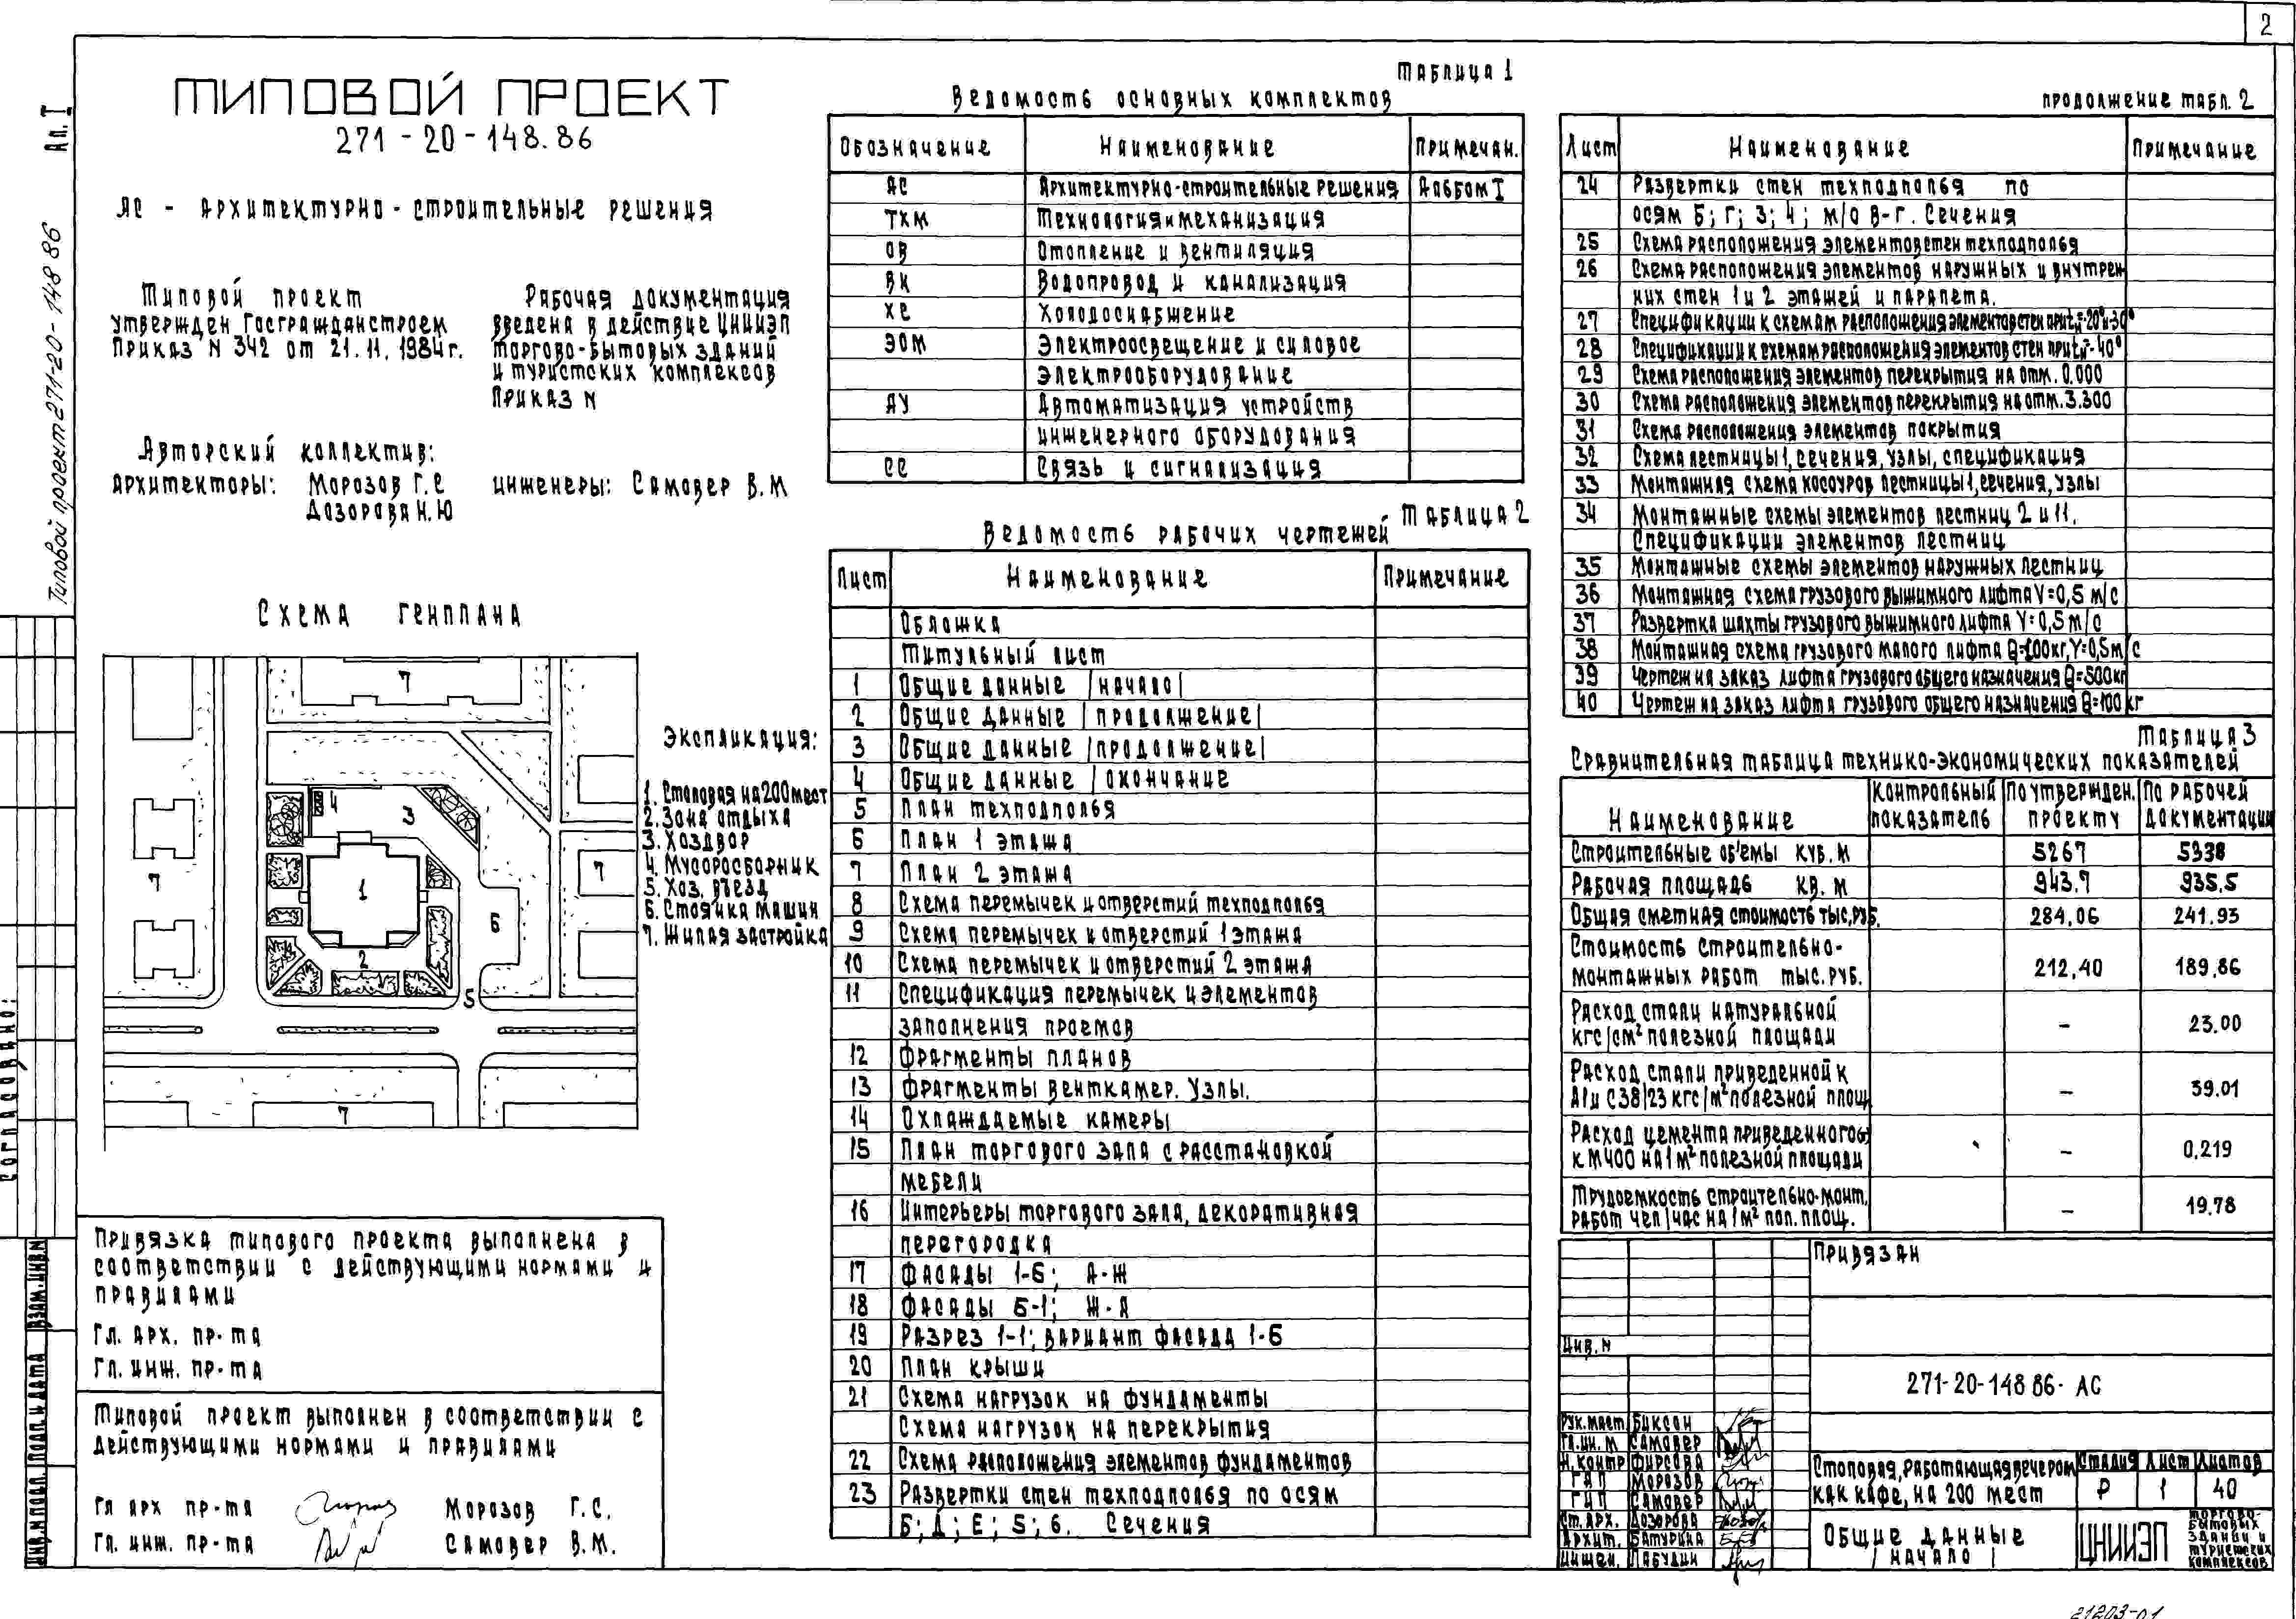 2
Ал. I
Типовой проект 271-20-148 86
ТИПОВОЙ ПРОЕКТ
271 - 20 - 148.86
АС - АРХИТЕКТУРНО - СТРОИТЕЛЬНЫЕ РЕШЕНИЯ
Типовой проект
утвержден Госгражданстроем
Приказ N 342 от 21.11.1984г.
Рабочая документация
введена в действие ЦНИИЭП
торгово-бытовых зданий
и туристских комплексов
Приказ N
Авторский коллектив:
Архитекторы: Морозов Г.С
Дозорова Н.Ю
инженеры: Самовер В.М
Схема генплана
7
4
3
7
7
1
6
2
5
7
Экспликация:
1. Столовая на 200 мест
2. Зона отдыха
3. Хоздвор
4. Мусоросборник
5. Хоз. въезд
6. Стоянка машин
7. Жилая застройка
Привязка типового проекта выполнена в
соответствии с действующими нормами и
правилами
Гл. арх. пр-та
Гл. инж. пр-та
Типовой проект выполнен в соответствии с
действующими нормами и правилами
Гл арх пр-та Морозов Г.С.
Гл. инж. пр-та Самовер В.М.
Согласовано:
Взам. инв. N
Подп. и дата
Инв. N подл.
Таблица 1
Ведомость основных комплектов
Обозначение Наименование Примечан.
АС Архитектурно-строительные решения Альбом I
ТХМ Технология и механизация
ОВ Отопление и вентиляция
ВК Водопровод и канализация
ХС Холодоснабжение
ЭОМ Электроосвещение и силовое
электрооборудование
АУ Автоматизация устройств
инженерного оборудования
СС Связь и сигнализация
Таблица 2
Ведомость рабочих чертежей
Лист Наименование Примечание
Обложка
Титульный лист
1 Общие данные /начало/
2 Общие данные /продолжение/
3 Общие данные /продолжение/
4 Общие данные /окончание
5 План техподполья
6 План 1 этажа
7 План 2 этажа
8 Схема перемычек и отверстий техподполья
9 Схема перемычек и отверстий 1 этажа
10 Схема перемычек и отверстий 2 этажа
11 Спецификация перемычек и элементов
заполнения проемов
12 Фрагменты планов
13 Фрагменты венткамер. Узлы.
14 Охлаждаемые камеры
15 План торгового зала с расстановкой
мебели
16 Интерьеры торгового зала, декоративная
перегородка
17 Фасады 1-6; А-Ж
18 Фасады 6-1; Ж-А
19 Разрез 1-1; вариант фасада 1-6
20 План крыши
21 Схема нагрузок на фундаменты
Схема нагрузок на перекрытия
22 Схема расположения элементов фундаментов
23 Развертки стен техподполья по осям
Б; Д; Е; 5; 6. Сечения
продолжение табл. 2
Лист Наименование Примечание
24 Развертки стен техподполья по
осям Б; Г; 3; 4; м/о В-Г. Сечения
25 Схема расположения элементов стен техподполья
26 Схема расположения элементов наружных и внутрен
них стен 1 и 2 этажей и парапета.
27 Спецификации к схемам расположения элементов стен при tн=-20° и -30°
28 Спецификации к схемам расположения элементов стен при tн=-40°
29 Схема расположения элементов перекрытия на отм. 0.000
30 Схема расположения элементов перекрытия на отм. 3.300
31 Схема расположения элементов покрытия
32 Схема лестницы 1, сечения, узлы, спецификация
33 Монтажная схема косоуров лестницы 1, сечения, узлы
34 Монтажные схемы элементов лестниц 2 и 11.
Спецификации элементов лестниц
35 Монтажные схемы элементов наружных лестниц
36 Монтажная схема грузового выжимного лифта V=0,5 м/с
37 Развертка шахты грузового выжимного лифта V=0,5 м/с
38 Монтажная схема грузового малого лифта Q=100кг, V=0,5м/с
39 Чертеж на заказ лифта грузового общего назначения Q=500кг
40 Чертеж на заказ лифта грузового общего назначения Q=100 кг
Таблица 3
Сравнительная таблица технико-экономических показателей
Наименование Контрольный показатель По утвержден. проекту По рабочей документации
Строительные объемы куб. м 5267 5338
Рабочая площадь кв. м 943.7 935.5
Общая сметная стоимость тыс. руб. 284.06 241.93
Стоимость строительно-
монтажных работ тыс. руб. 212.40 189.86
Расход стали натуральной
кгс/см² полезной площади - 23.00
Расход стали приведенной к
А1 и С38/23 кгс/м² полезной площ. - 39.01
Расход цемента приведенного
к М400 на 1 м² полезной площади - 0.219
Трудоемкость строительно-монт.
работ чел/час на 1 м² пол. площ. - 19.78
Привязан
Инв. N
271-20-148 86- АС
Рук. маст Биксон
Гл. ин. М Самовер
Н. контр Фирсова
ГАП Морозов
ГИП Самовер
Ст. арх. Дозорова
Архит. Батурина
Инжен. Лабудин
Столовая, работающая вечером
как кафе, на 200 мест
Стадия Лист Листов
Р 1 40
Общие данные
/начало/
ЦНИИЭП
торгово-
бытовых
зданий и
туристских
комплексов
21203-01